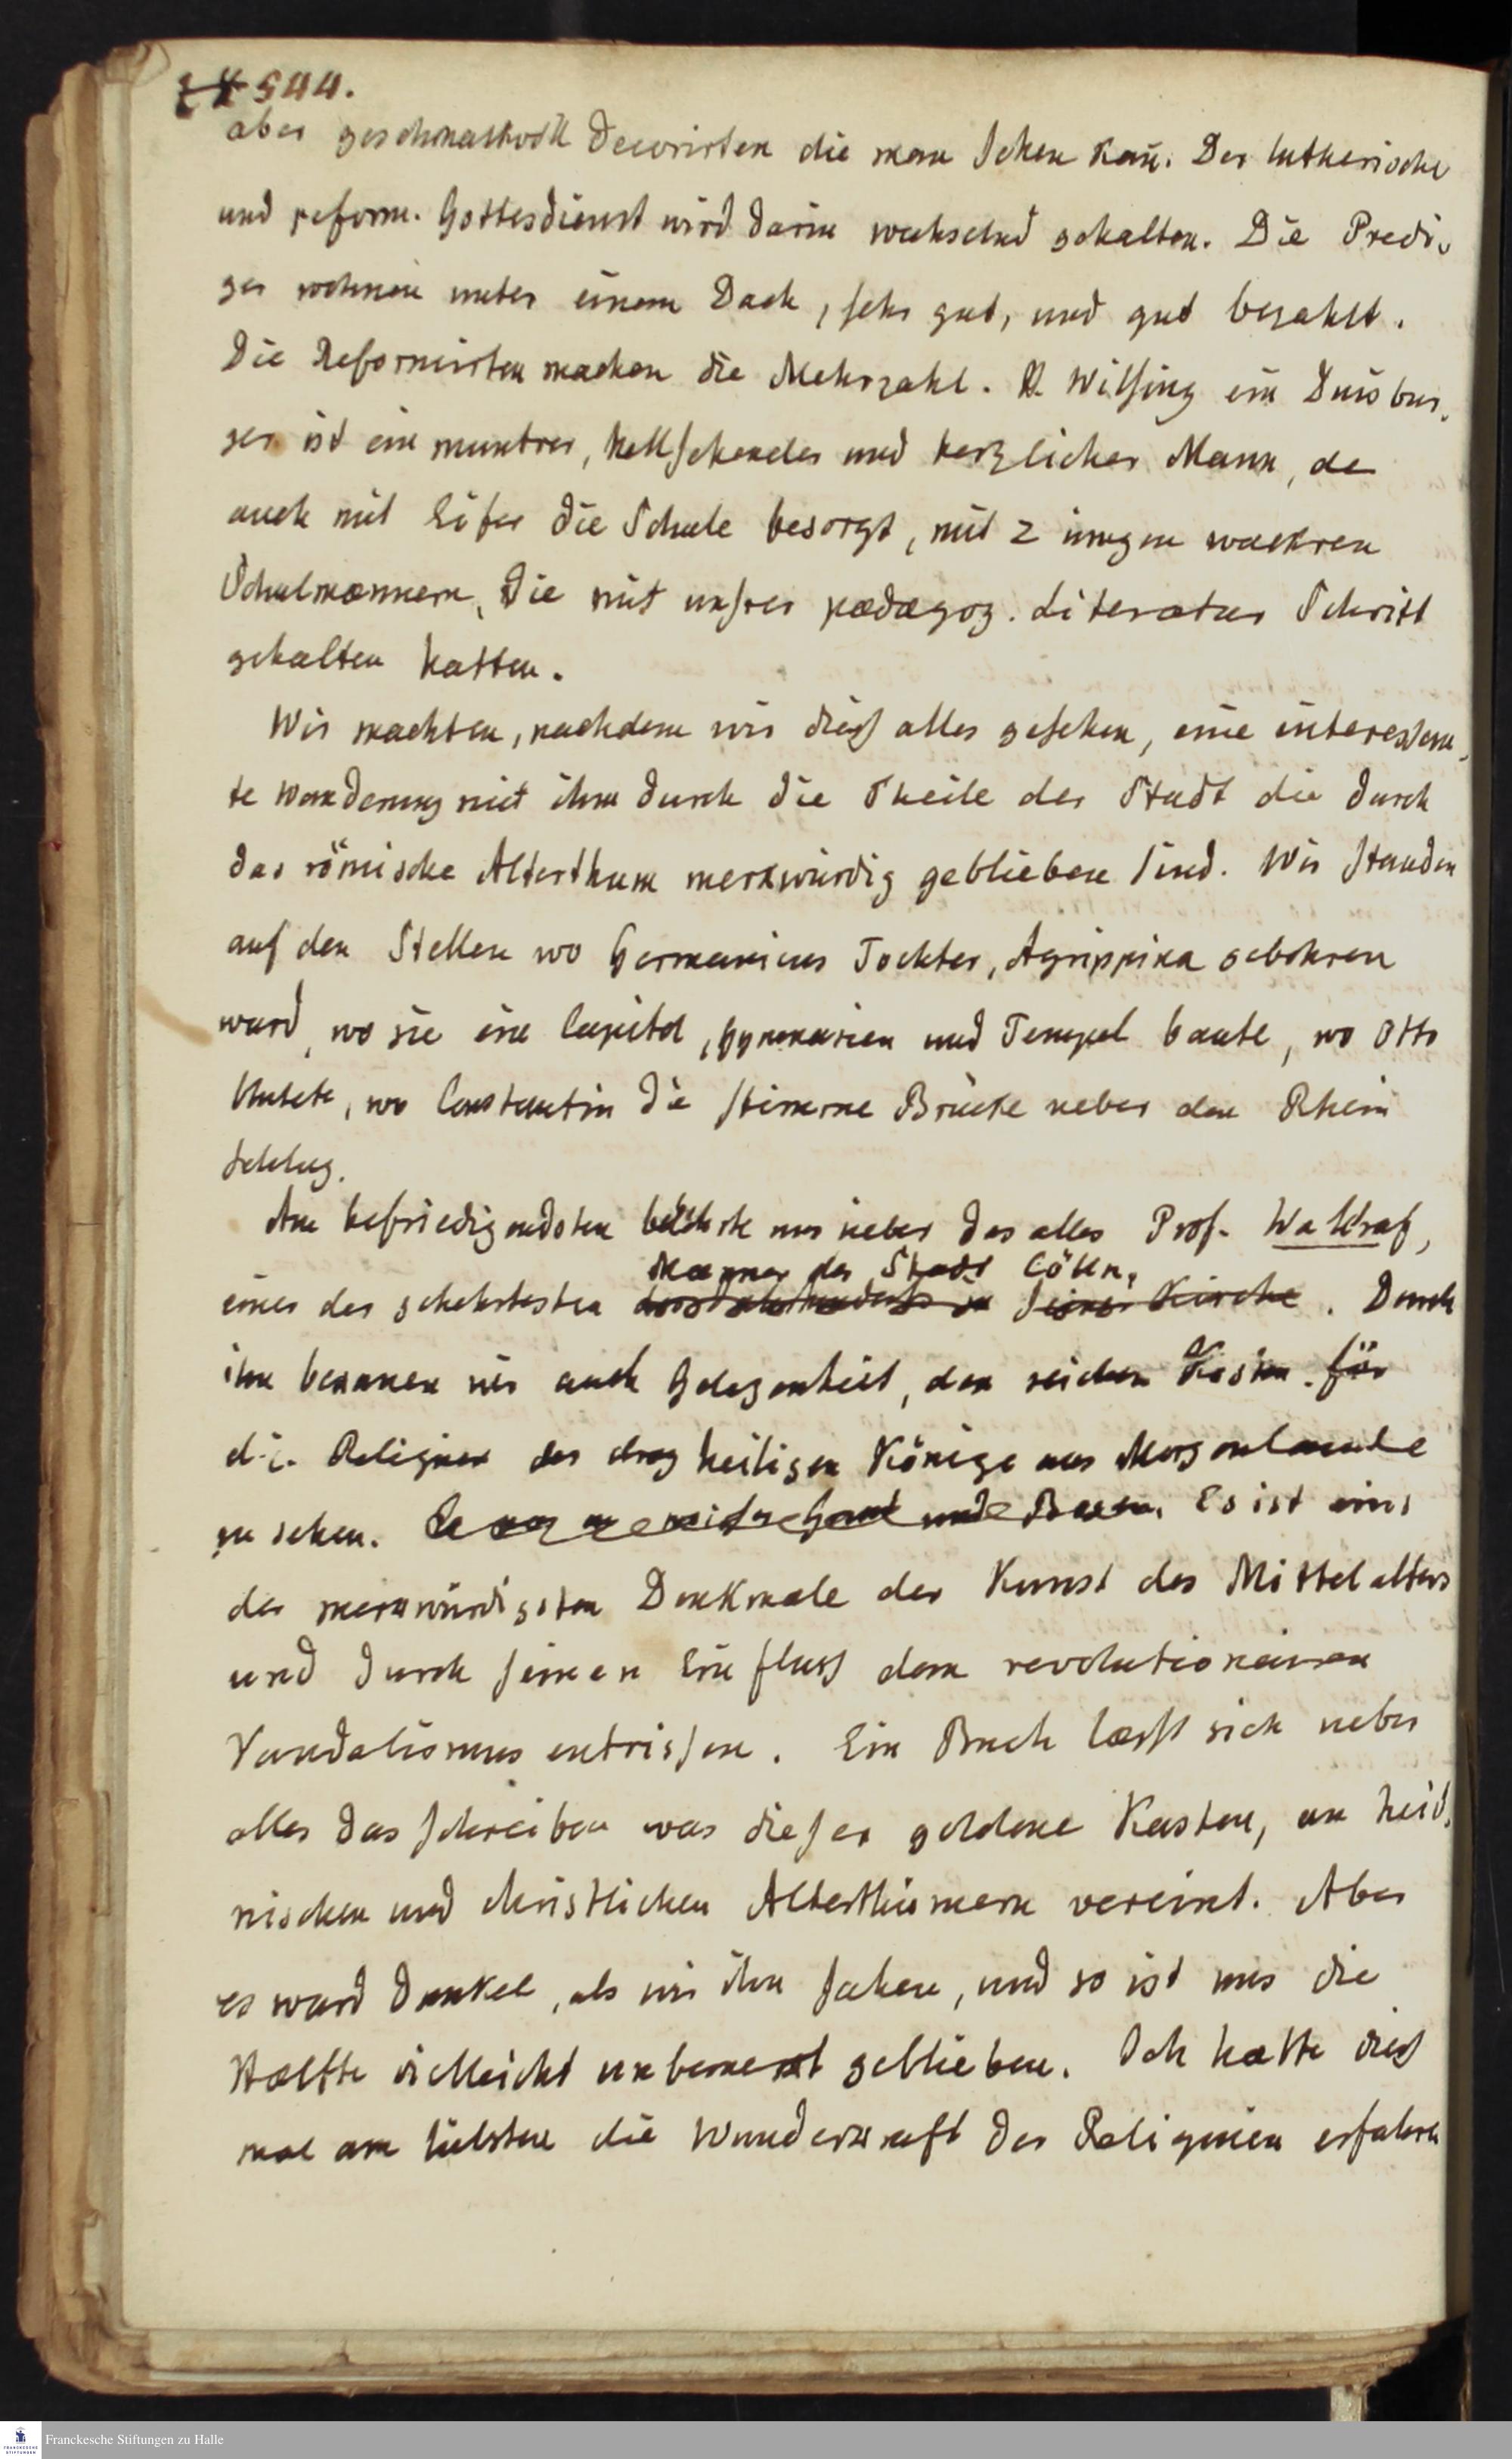 544.
aber geschmackvoll decorirten die man sehen kañ. Der lutherische
und reform. Gottesdienst wird darin wechselnd gehalten. Die Predi-
ger wohnen unter einem Dach, sehr gut, und gut bezahlt.
Die Reformirten machen die Mehrzahl. H. Wilsing ein Duisbur-
ger ist ein muntrer, hellsehender und herzlicher Mann, de
auch mit Eifer die Schule besorgt, mit 2 jungen wackren
Schulmænnern, die mit unsrer pædagog. Literatur Schritt
gehalten hatten.
Wir machten, nachdem wir dieß alles gesehen, eine interessan-
te Wanderung mit ihm durch die Theile der Stadt die durch
das römische Alterthum merkwürdig geblieben sind. Wir standen
auf den Stellen wo Germanicus Tochter, Agrippina gebohren
ward, wo sie ein Capitol, Gymnasien und Tempel baute, wo Otto
, wo Constantin die steinerne Brücke ueber den Rhein
schlug.
Am befriedigendsten belehrte uns ueber das alles Prof. Wallraf,
Mænner der Stadt Cölln,
einer der gelehrtesten seiner Kirche. Durch
ihn bekamen wir auch Gelegenheit, den reichen Kasten für
die Reliquien der drey heiligen Könige aus Morgenlande
zu sehen. Es ist eins
der merkwürdigsten Denkmale der Kunst des Mittelalters
und durch seinen Einfluss dem revolutionairen
Vandalismus entrissen. Ein Buch læsst sich ueber
alles das schreiben was dieser goldene Kasten, an heid-
nischen und christlichen Alterthümern vereint. Aber
es ward dunkel, als wir ihn sahen, und so ist uns die
Hælfte vielleicht unbemerkt geblieben. Ich hatte dieß
mal am liebsten die Wunderkraft der Reliquien erfahren
Franckesche Stiftungen zu Halle